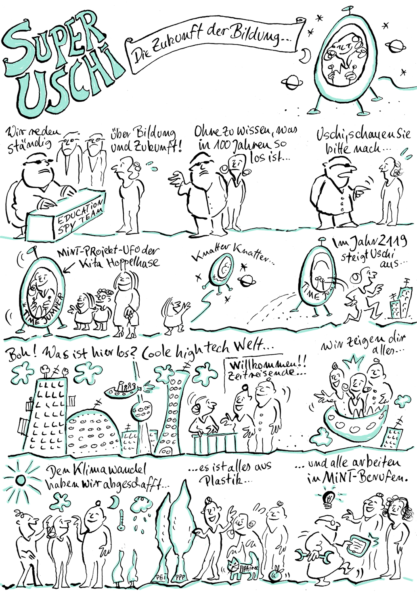 SUPER
USCHI
Die Zukunft der Bildung...
Wir reden
ständig
über Bildung
und Zukunft!
EDUCATION
SPY TEAM
Ohne zu wissen, was
in 100 Jahren so
los ist...
Uschi, schauen Sie
bitte nach...
MINT-PROjekt-UFO der
Kita Hoppelhase
TIME
Knatter Knatter...
Im Jahr 2119
steigt Uschi
aus...
TIME
Boh! Was ist hier los? Coole high tech Welt...
Willkommen!!
Zeitreisende...
Wir zeigen dir
alles...
Den Klimawandel
haben wir abgeschafft...
...es ist alles aus
Plastik...
... und alle arbeiten
in MINT-Berufen.